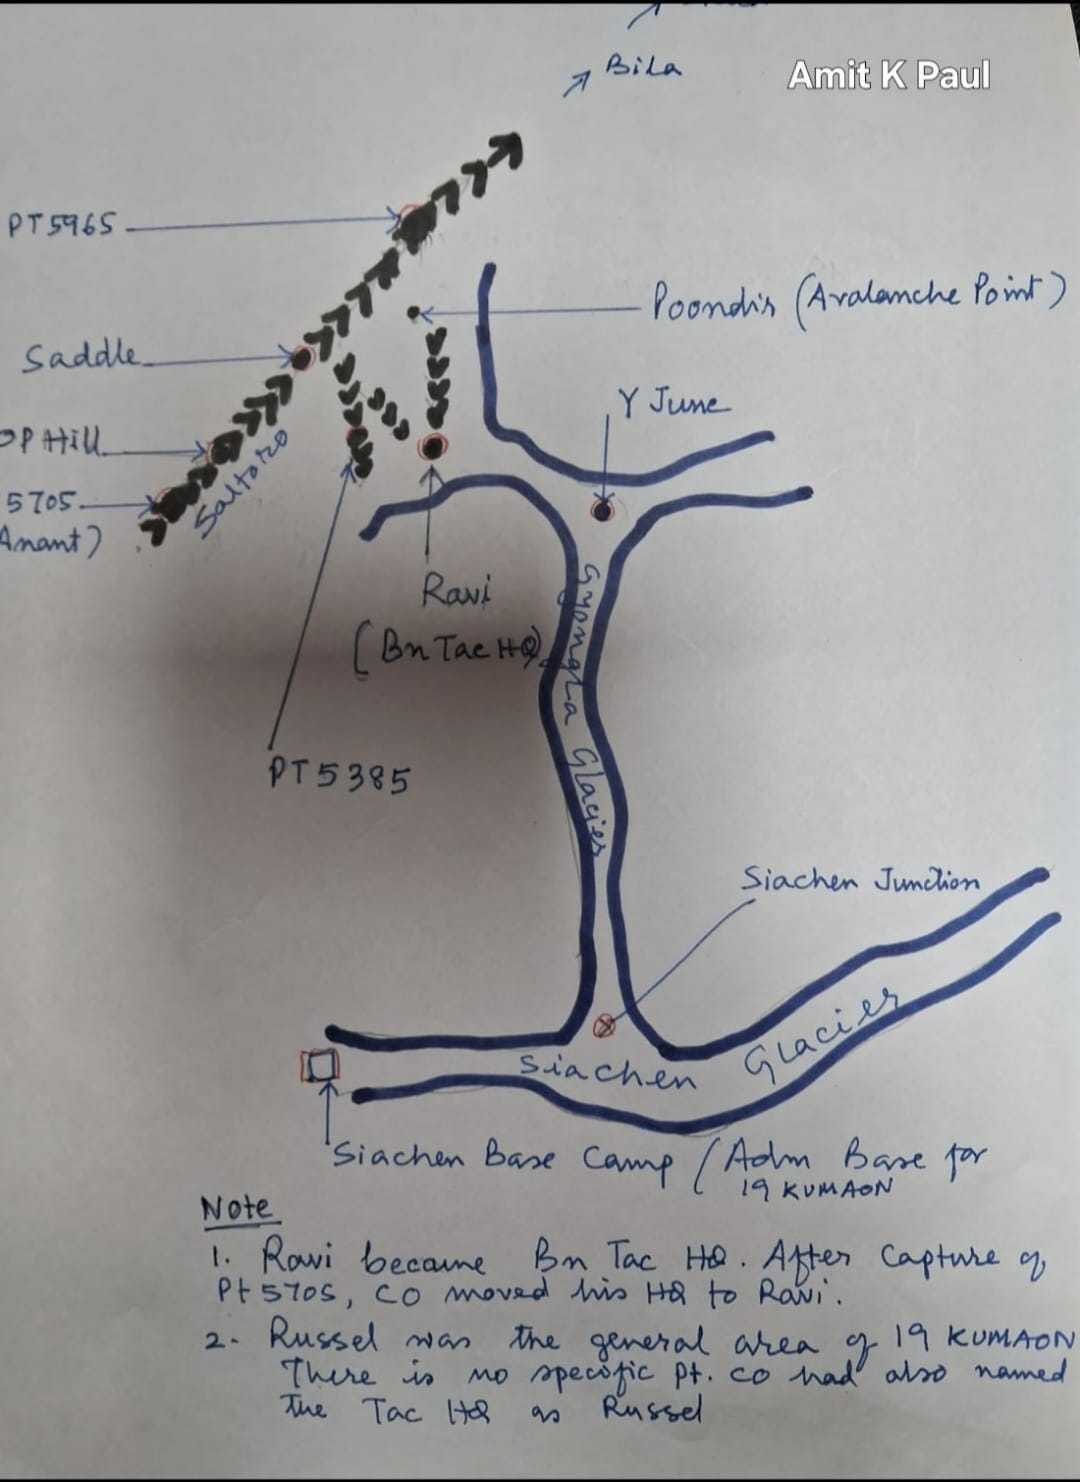 Bila
Amit K Paul
PT 5965
Poondis (Avalanche Point)
Saddle
Y Junc
OP Hill
Saltoro
5705
Anant)
Ravi
(Bn Tac HQ)
Gyongla Glacier
PT 5385
Siachen Junction
Siachen Glacier
Siachen Base Camp / Adm Base for
19 KUMAON
Note
1. Ravi became Bn Tac HQ. After Capture of
Pt 5705, CO moved his HQ to Ravi.
2- Russel was the general area of 19 KUMAON
There is no specific Pt. CO had also named
the Tac HQ as Russel